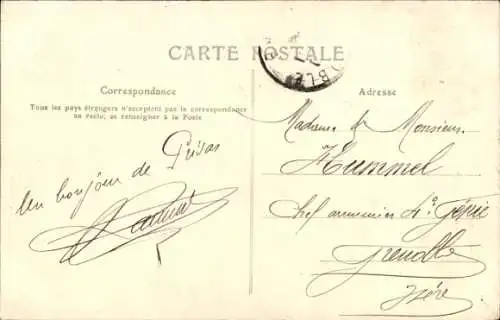 CARTE POSTALE
BLE
Correspondance
Tous les pays étrangers n'acceptent pas la correspondance
au recto, se renseigner à la Poste
Un bonjour de Privas
Adresse
Madame & Monsieur
Hummel
chef armurier 4e Génie
Grenoble
Isère